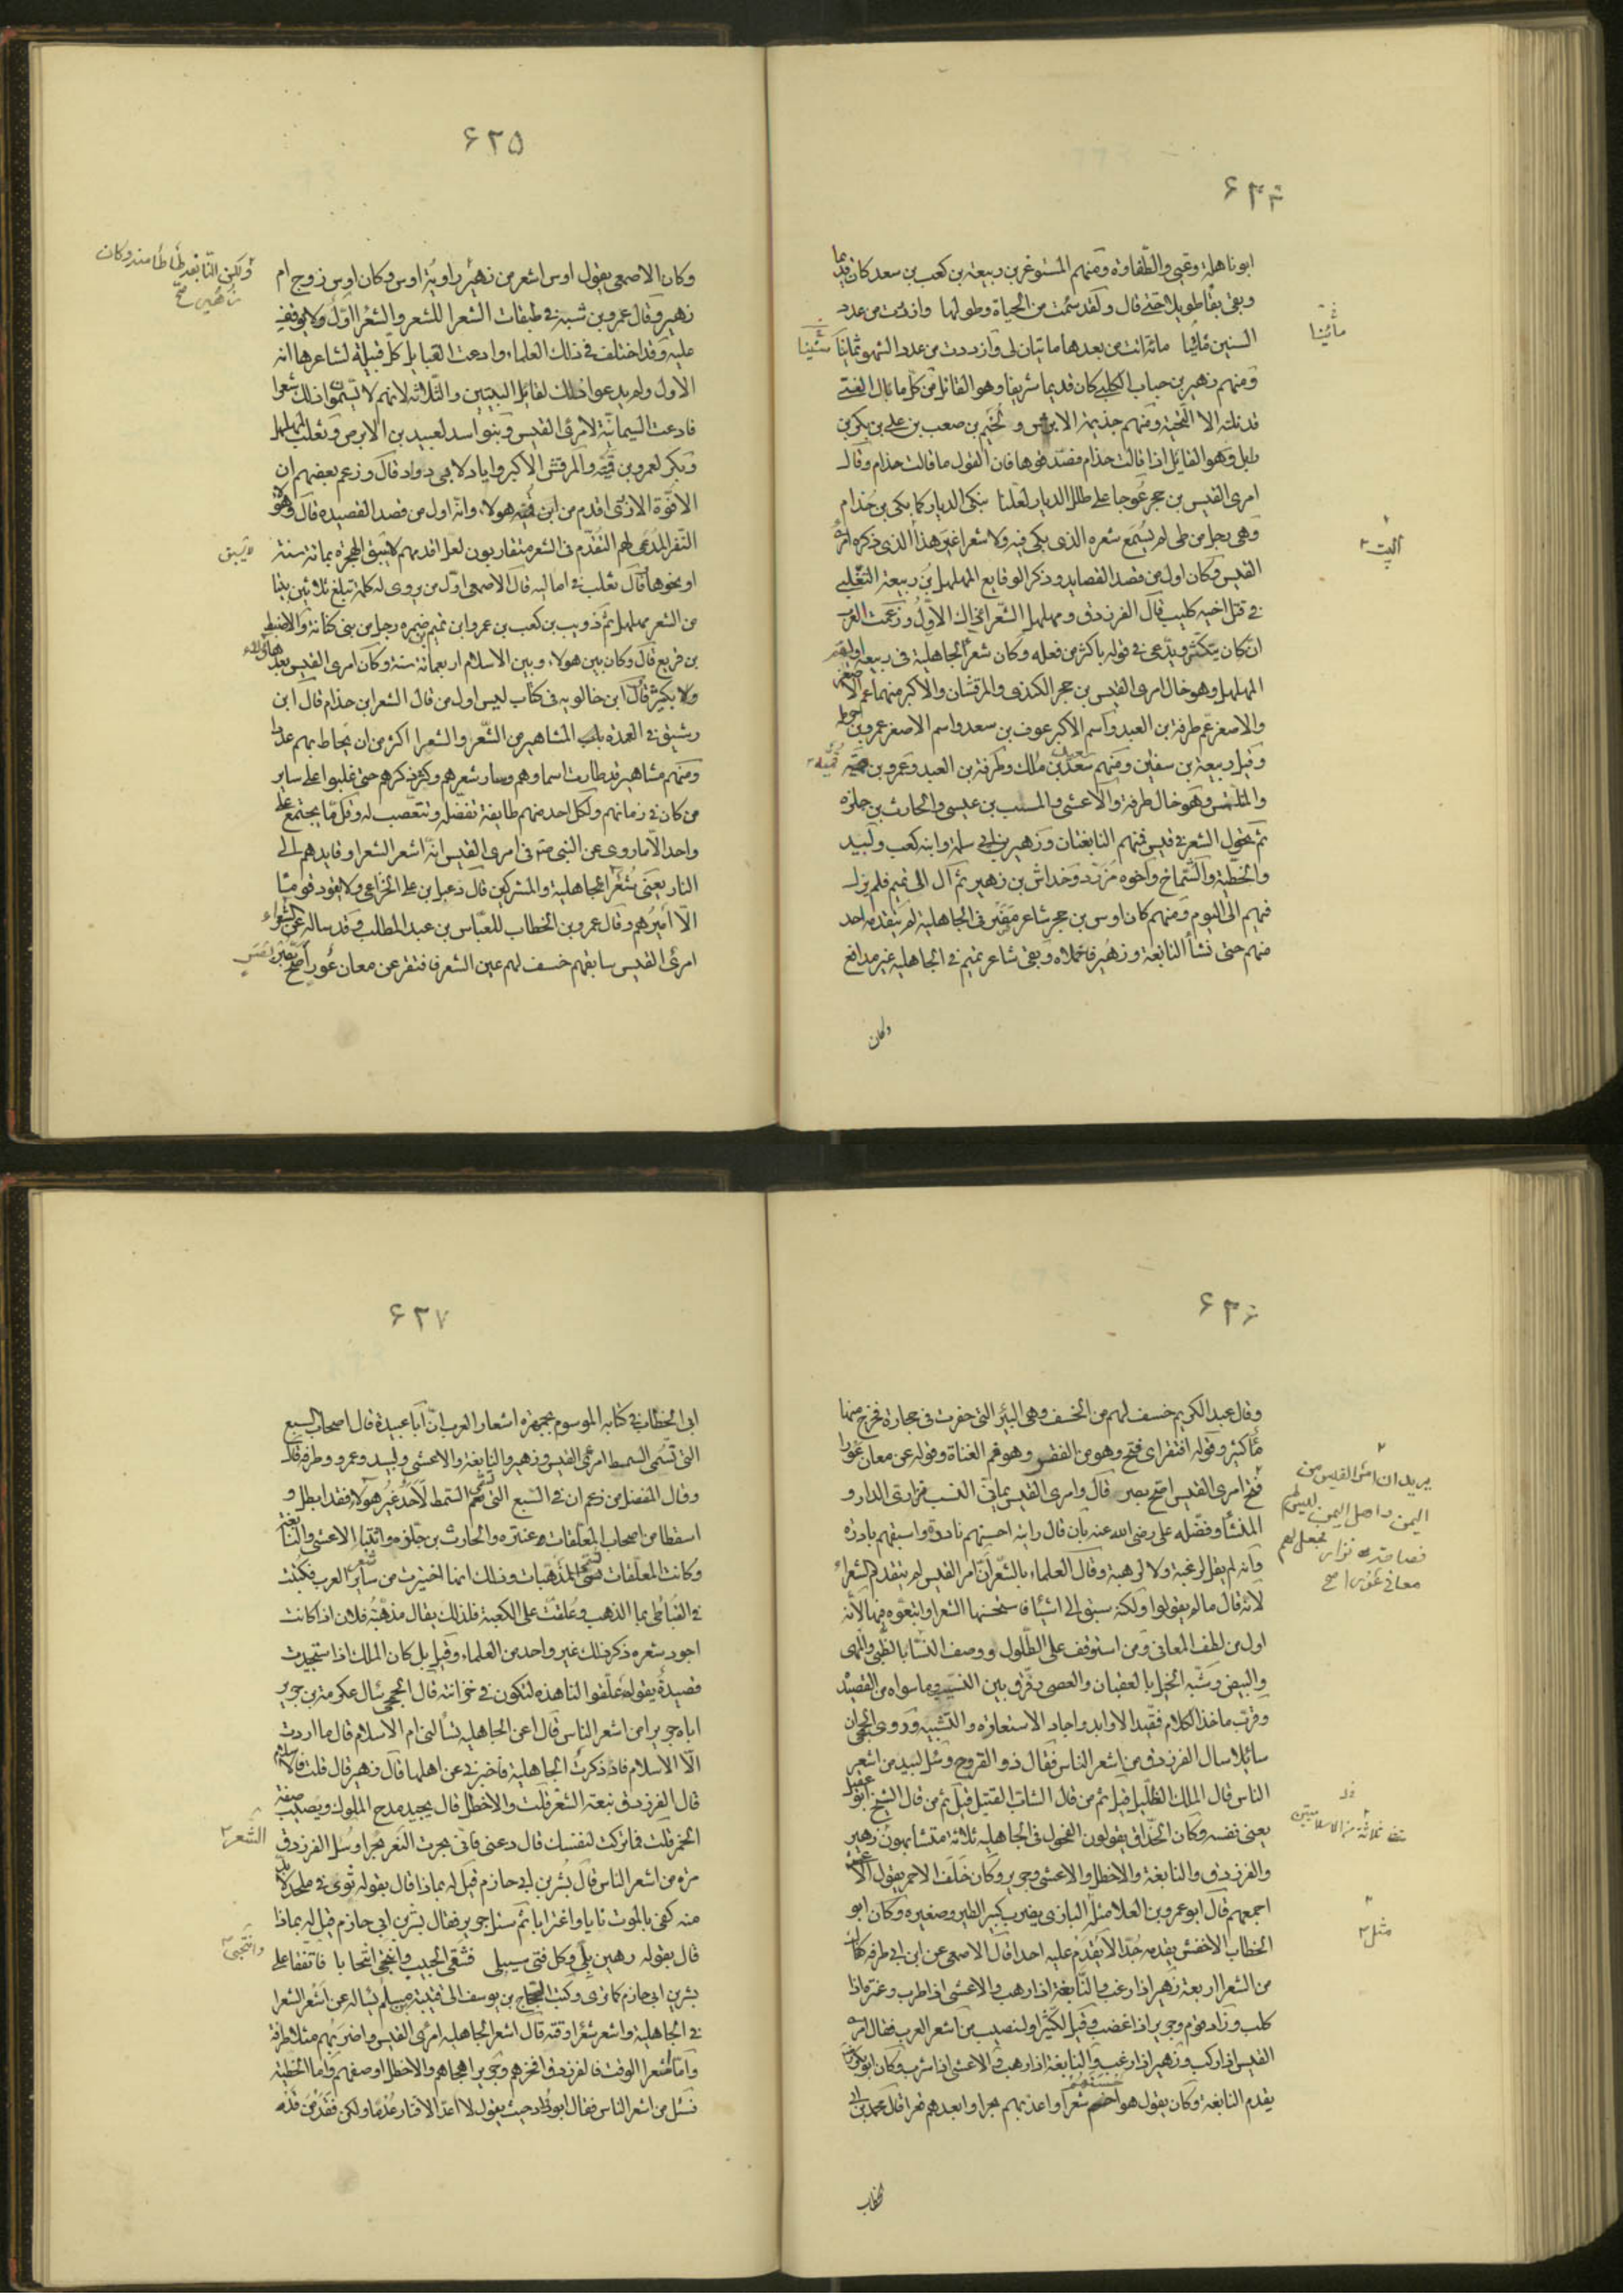 ۶۲۴
ابو باهلة وغنى والطفاوة ومنهم المستوغر بن ربيعة بن كعب بن سعد كان قديما
وبقى بقا طويلا حتى قال ولقد سئمت من الحياة وطولها وازددت من عدد
السنين مائينا مائة اتت من بعدها مائتان لى وازددت من عدد الشهور سنينا
ومنهم زهير بن جناب الكلبى كان قديما شريفا وهو القائل من كل ما نال الفتى
قد نلته الا التحية ومنهم جذيمة الابرش و لجيم بن صعب بن على بن بكر بن
وايل وهو القايل اذا قالت حذام فصدقوها فان القول ما قالت حذام وقال
امرى القيس بن حجر عوجا على طلل الديار لعلنا نبكى الديار كما بكى بن خذام
وهى رجل من طى لم يسمع شعره الذى بكى فيه ولا شعرا غير هذا الذى ذكره امرؤ
القيس وكان اول من قصد القصايد وذكر الوقايع المهلهل بن ربيعة التغلبى
فى قتل اخيه كليب قال الفرزدق ومهلهل الشعرا ذاك الاول وزعمت العرب
انه كان يتكثر ويدعى فى قوله باكثر من فعله وكان شعرا الجاهلية فى ربيعة اولهم
المهلهل وهو خال امرى القيس بن حجر الكندى والمرقشان والاكبر منهما عم الاصغر
والاصغر عم طرفة بن العبد واسم الاكبر عوف بن سعد واسم الاصغر عمرو بن حرملة
وقيل ربيعة بن سفين ومنهم سعد بن مالك وطرفة بن العبد وعمرو بن قميئة
والمتلمس وهو خال طرفة والاعشى والمسيب بن عليس والحارث بن حلزه
ثم تحول الشعر فى قيس فمنهم النابغتان وزهير بن ابى سلمى وابنه كعب ولبيد
والحطيئة والشماخ واخوه مزرد وخداش بن زهير ثم آل الى تميم فلم يزل
فيهم الى اليوم ومنهم كان اوس بن حجر شاعر مضر فى الجاهلية لم يتقدمه احد
منهم حتى نشأ النابغة وزهير فاخملاه وبقى شاعر تميم فى الجاهلية غير مدافع
وكان
مائينا
سنينا
البيت
قميئة
۶۲۵
وكان الاصمعى يقول اوس اشعر من زهير راوية اوس وكان اوس زوج ام
زهير وقال عمرو بن شبة فى طبقات الشعرا للشعر والشعرا اول ولا يوقف
عليه وقد اختلف فى ذلك العلماء وادعت القبايل كل قبيلة لشاعرها انه
الاول ولم يدعوا ذلك لقايل البيتين والثلاثة لانهم لا يسمون ذلك شعرا
فادعت اليمانية لامرئ القيس وبنو اسد لعبيد بن الابرص وتغلب لمهلهل
وبكر لعمرو بن قميئة والمرقش الاكبر واياد لابى دواد قال وزعم بعضهم ان
الافوه الاودى اقدم من ابن قميئة هولاء وانه اول من قصد القصيده قال وهؤلاء
النفر المدعى لهم التقدم فى الشعر متقاربون لعل اقدمهم لا يسبق الهجرة بمائة سنة
او نحوها قال ثعلب فى اماليه قال الاصمعى اول من يروى له كلمة تبلغ ثلاثين بيتا
من الشعر مهلهل ثم ذويب بن كعب بن عمرو ابن تميم ثم ضمره رجل من بنى كنانة والاضبط
بن قريع قال وكان بين هولاء وبين الاسلام اربعمائة سنة وكان امرى القيس بعد هؤلاء
ولا بكثير قال ابن خالويه فى كتاب ليس اول من قال الشعر ابن حذام قال ابن
رشيق فى العمده باب المشاهير من الشعر والشعرا اكثر من ان يحاط بهم عددا
ومنهم مشاهير قد طارت اسماوهم وسار شعرهم وكثر ذكرهم حتى غلبوا على ساير
من كان فى زمانهم ولكل احد منهم طايفة تفضله وتتعصب له وقل ما يجتمع على
واحد الا ما روى عن النبى صم فى امرى القيس انه اشعر الشعرا وقايدهم الى
النار يعنى شعرا الجاهلية والمشركين قال دعبل بن على الخزاعى ولا يقود قوما
الا اميرهم وقال عمر بن الخطاب للعباس بن عبد المطلب وقد ساله عن الشعراء
امرئ القيس سابقهم خسف لهم عين الشعر فافتقر عن معان عور اصح بصر
ولكن النابغة طاطا منه وكان
زهير صح
لا يسبق
۶۲۶
وقال عبد الكريم خسف لهم من الخسف وهى البئر التى حفرت فى حجارة فخرج منها
ماء كثير وقوله افتقر اى فتح وهو من الفقير وهو فم القناة وقوله عن معان عور
فتح امرى القيس اصح بصر قال وامرى القيس يمانى النسب نزارى الدار و
المنشأ وفضله على رضى الله عنه بان قال رايته احسنهم نادرة واسبقهم بادرة
وانه لم يقل لرغبة ولا لرهبة وقال العلماء بالشعر ان امرا القيس لم يتقدم الشعراء
لانه قال ما لم يقولوا ولكنه سبق الى اشيا فاستحسنها الشعرا واتبعوه فيها لانه
اول من لطف المعانى ومن استوقف على الطلول ووصف النسا بالظبى والمهى
والبيض وشبه الخيل بالعقبان والعصى وفرق بين النسيب وما سواه من القصيد
وقرب ماخذ الكلام فقيد الاوابد واجاد الاستعارة والتشبيه وروى الجمحى ان
سائلا سال الفرزدق من اشعر الناس فقال ذو القروح وسئل لبيد من اشعر
الناس قال الملك الضليل قيل ثم من قال الشاب القتيل قيل ثم من قال الشيخ ابو عقيل
يعنى نفسه وكان الحذاق يقولون الفحول فى الجاهلية ثلاثة متشابهون زهير
والفرزدق والنابغة والاخطل والاعشى وجرير وكان خلف الاحمر يقول الاعشى
اجمعهم قال ابو عمرو بن العلا مثله البازى يضرب كبير الطير وصغيره وكان ابو
الخطاب الاخفش يقدمه جدا لا يقدم عليه احدا قال الاصمعى عن ابن ابى طرفه كفاك
من الشعرا اربعة زهير اذا رغب والنابغة اذا رهب والاعشى اذا طرب وعنترة اذا
كلب وزاد قوم وجرير اذا غضب وقيل لكثير او لنصيب من اشعر العرب فقال امرء
القيس اذا ركب وزهير اذا رغب والنابغة اذا رهب والاعشى اذا شرب وكان ابو بكر رضه
يقدم النابغة وكان يقول هو احسنهم شعرا واعذبهم بحرا وابعدهم قعرا قال محمد بن ابى
الخطاب
يريد ان امرئ القيس من
اليمن واهل اليمن ليس لهم
فصاحة نزار فجعل لهم
معانى عور اصح
وفى ثلاثة من الاسلاميين
مثل
۶۲۷
ابى الخطاب فى كتابه الموسوم بجمهرة اشعار العرب ان ابا عبيدة قال اصحاب السبع
التى تسمى السمط امرئ القيس وزهير والنابغة والاعشى ولبيد وعمرو وطرفه قال
وقال المفضل من زعم ان فى السبع التى تسمى السمط لاحد غير هولاء فقد ابطل و
اسقطا من اصحاب المعلقات عنتره والحارث بن حلزه واثبتا الاعشى والنابغة
وكانت المعلقات تسمى المذهبات وذلك انها اختيرت من ساير شعر العرب فكتبت
فى القباطى بما الذهب وعلقت على الكعبة فلذلك يقال مذهبة فلان اذا كانت
اجود شعره ذكر ذلك غير واحد من العلماء وقيل بل كان الملك اذا استجيدت
قصيدة يقول علقوا لنا هذه لتكون فى خزانته قال الجمحى سال عكرمة بن جرير
اباه جرير من اشعر الناس قال اعن الجاهلية تسألنى ام الاسلام قال ما اردت
الا الاسلام فاذا ذكرت الجاهلية فاخبرنى عن اهلها قال زهير قال قلت فالاسلام
قال الفرزدق نبعة الشعر قلت والاخطل قال يجيد مدح الملوك ويصيب صفة
الخمر قلت فما تركت لنفسك قال دعنى فانى نحرت الشعر نحرا وسئل الفرزدق
مره من اشعر الناس قال بشر بن ابى حازم قيل له بماذا قال بقوله ثوى فى ملحد لا بد
منه كفى بالموت نايا واغترابا ثم سئل جرير فقال بشر بن ابى حازم قيل له بماذا
قال بقوله رهين بلى وكل فتى سيبلى فشقى الجيب وانتحبى انتحابا فاتفقا على
بشر بن ابى حازم كما ترى وكتب الحجاج بن يوسف الى قتيبة بن مسلم يساله عن اشعر الشعرا
فى الجاهلية واشعر شعرا وقته قال اشعر الجاهلية امرئ القيس واضربهم مثلا طرفة
واما شعرا الوقت فالفرزدق افخرهم وجرير اهجاهم والاخطل اوصفهم واما الحطيئة
فسئل من اشعر الناس فقال ابو دواد حيث يقول لا اعد الاقتار عدما ولكن فقد من قد
الشعر
وانتحبى